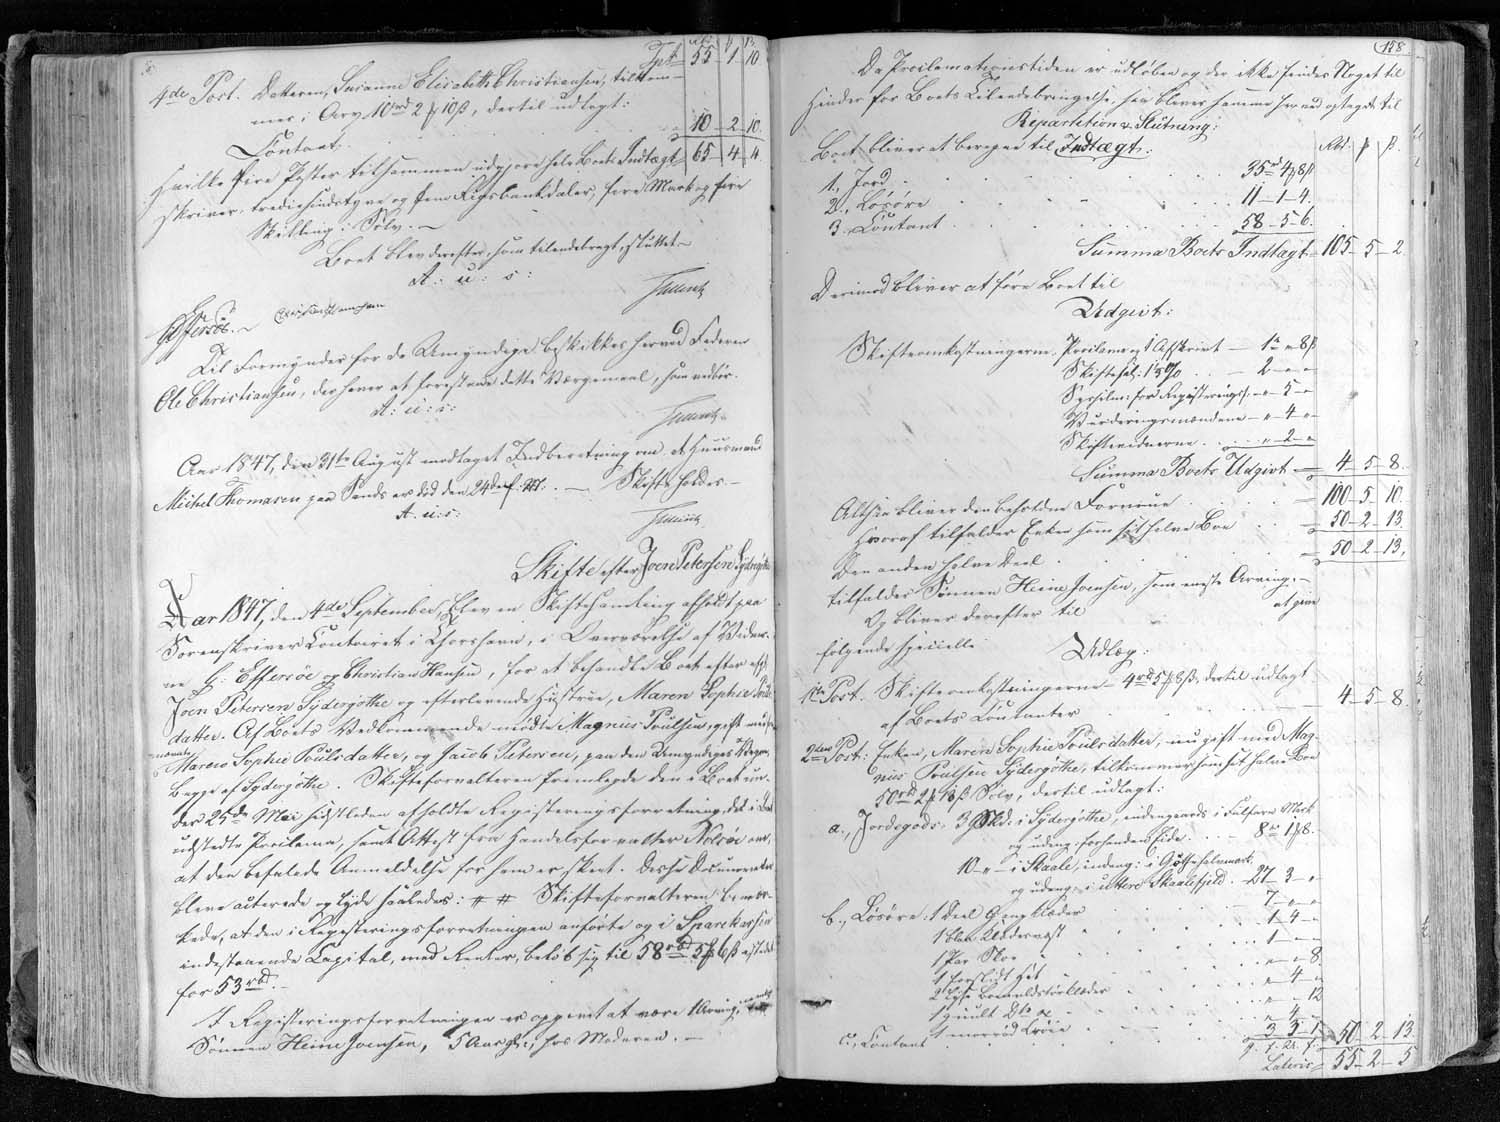 Rbd. ₰ ß.
Tpt. 55 - 1 - 10
4de Post. Datteren, Susanne Elisabeth Christiansen, tilkom-
mer i Arv 10 rbd 2 ₰ 10 ß, dertil udlagt:
Contant. 10 - 2 - 10.
Hvilke fire Poster tilsammen udgjøre hele Boets Indtægt 65 - 4 - 4
skriver: tredsindstyve og fem Rigsbankdaler, fire Mark og fire
Skilling i Sølv. -
Boet blev derefter, som tilendebragt, sluttet -
A: u: s:
Effersøe. - Christian Hansen
Til Formynder for de Umyndige beskikkes herved Faderen
Ole Christiansen, der haver at forestaae dette Værgemaal, som vedbør.
A: u: s:
Aar 1847, den 31te August modtaget Indberetning om, at Huusmand
Michel Thomasen paa Sands er død den 24de f. M. - Skifte holdes -
A: u: s:
Skifte efter Joen Petersen Sydergøthe
Aar 1847, den 4de September, blev en Skiftesamling afholdt paa
Sorenskriver Contoiret i Thorshavn, i Overværelse af Vidner-
ne H: Effersøe og Christian Hansen, for at behandle Boet efter afg:
Joen Petersen Sydergøthe og efterlevende Hustrue, Maren Sophie Pouls-
datter. Af Boets Vedkommende mødte Magnus Poulsen, gift med
Maren Sophie Poulsdatter, og Jacob Petersen, paa den Umyndiges Vegne,
begge af Sydergøthe. Skifteforvalteren fremlagde den i Boet un-
der 25de Mai sidstleden afholdte Registeringsforretning, det i Boet
udstedte Proclama, samt Attest fra Handelsforvalter Nolsøe om,
at den befalede Anmeldelse for ham er skeet. Disse Documenter
bleve acterede og lyde saaledes: # # Skifteforvalteren bemær-
kede, at den i Registeringsforretningen anførte og i Sparekassen
indestaaende Capital, med Renter, beløb sig til 58 rbd 5 ₰ 6 ß istedet
for 53 rbd.
I Registeringsforretningen er opgivet at være 1 Arving,
Sønnen Heine Joensen, 5 Aar gl:, hos Moderen. -
158
Da Proclamationstiden er udløben og der ikke findes Noget til
Hinder for Boets Tilendebringelse, saa bliver samme herved optaget til
Repartition & Slutning:
Boet bliver at beregne til Indtægt: Rbd. ₰ ß.
1., Jord . . . 35 rd 4 ₰ 8 ß
2., Løsøre . . . 11 - 1 - 4.
3., Contant . . . 58 - 5 - 6.
Summa Boets Indtægt = 105 - 5 - 2
Derimod bliver at føre Boet til
Udgivt:
Skifteomkostningerne, Proclama og 1 Afskrivt - 1 rd " 8 ß
Skiftesal: 1 3/8 % . . - 2 - " - "
Sysselm: for Registerings: - " - 5 - "
Vurderingsmændene - " - 4 - "
Skiftevidnerne . . . - " - 2 - "
Summa Boets Udgivt = 4 - 5 - 8.
Altsaa bliver den beholdne Formue . . . = 100 - 5 - 10.
Hvoraf tilfalder Enken som sit halve Boe . . = 50 - 2 - 13.
Den anden halve Deel . . . = 50 - 2 - 13.
tilfalder Sønnen Heine Joensen, som eneste Arving. -
Og bliver derefter til at give
følgende specielle Udlæg:
1ste Post. Skifteomkostningerne - 4 rbd 5 ₰ 8 ß, dertil udlagt
af Boets Contanter . . . 4 - 5 - 8.
2den Post: Enken, Maren Sophie Poulsdatter, nu gift med Mag-
nus Poulsen Sydergøthe, tilkommer som sit halve Boe
50 rbd 2 ₰ 13 ß Sølv, dertil udlagt:
a., Jordegods: 3 Skd: i Sydergøthe, indengaards i Mark
og udeng: . . . 8 rd 1 ₰ 8.
10 - " - i Skaale, indeng: i Gøthe halvmark
og udeng: i ittere Skaalefjeld. - 27 - 3 - "
b., Løsøre: 1 Deel Gangklæder . . . 7 - " - "
1 blaa Klædesvest . . . 1 - 4 - "
1 Par Skoe . . . 1 - " - "
1 forslidt Hat . . . " - " - 8
2 Bomuldstørklæder . . . " - 4 - "
1 guult Do . . . " - " - 12
1 morrød Trøie . . . " - 4 - "
c., Contant . . . 3 - 3 - 1 = 50 - 2 - 13
Lateris = 55 - 2 - 5